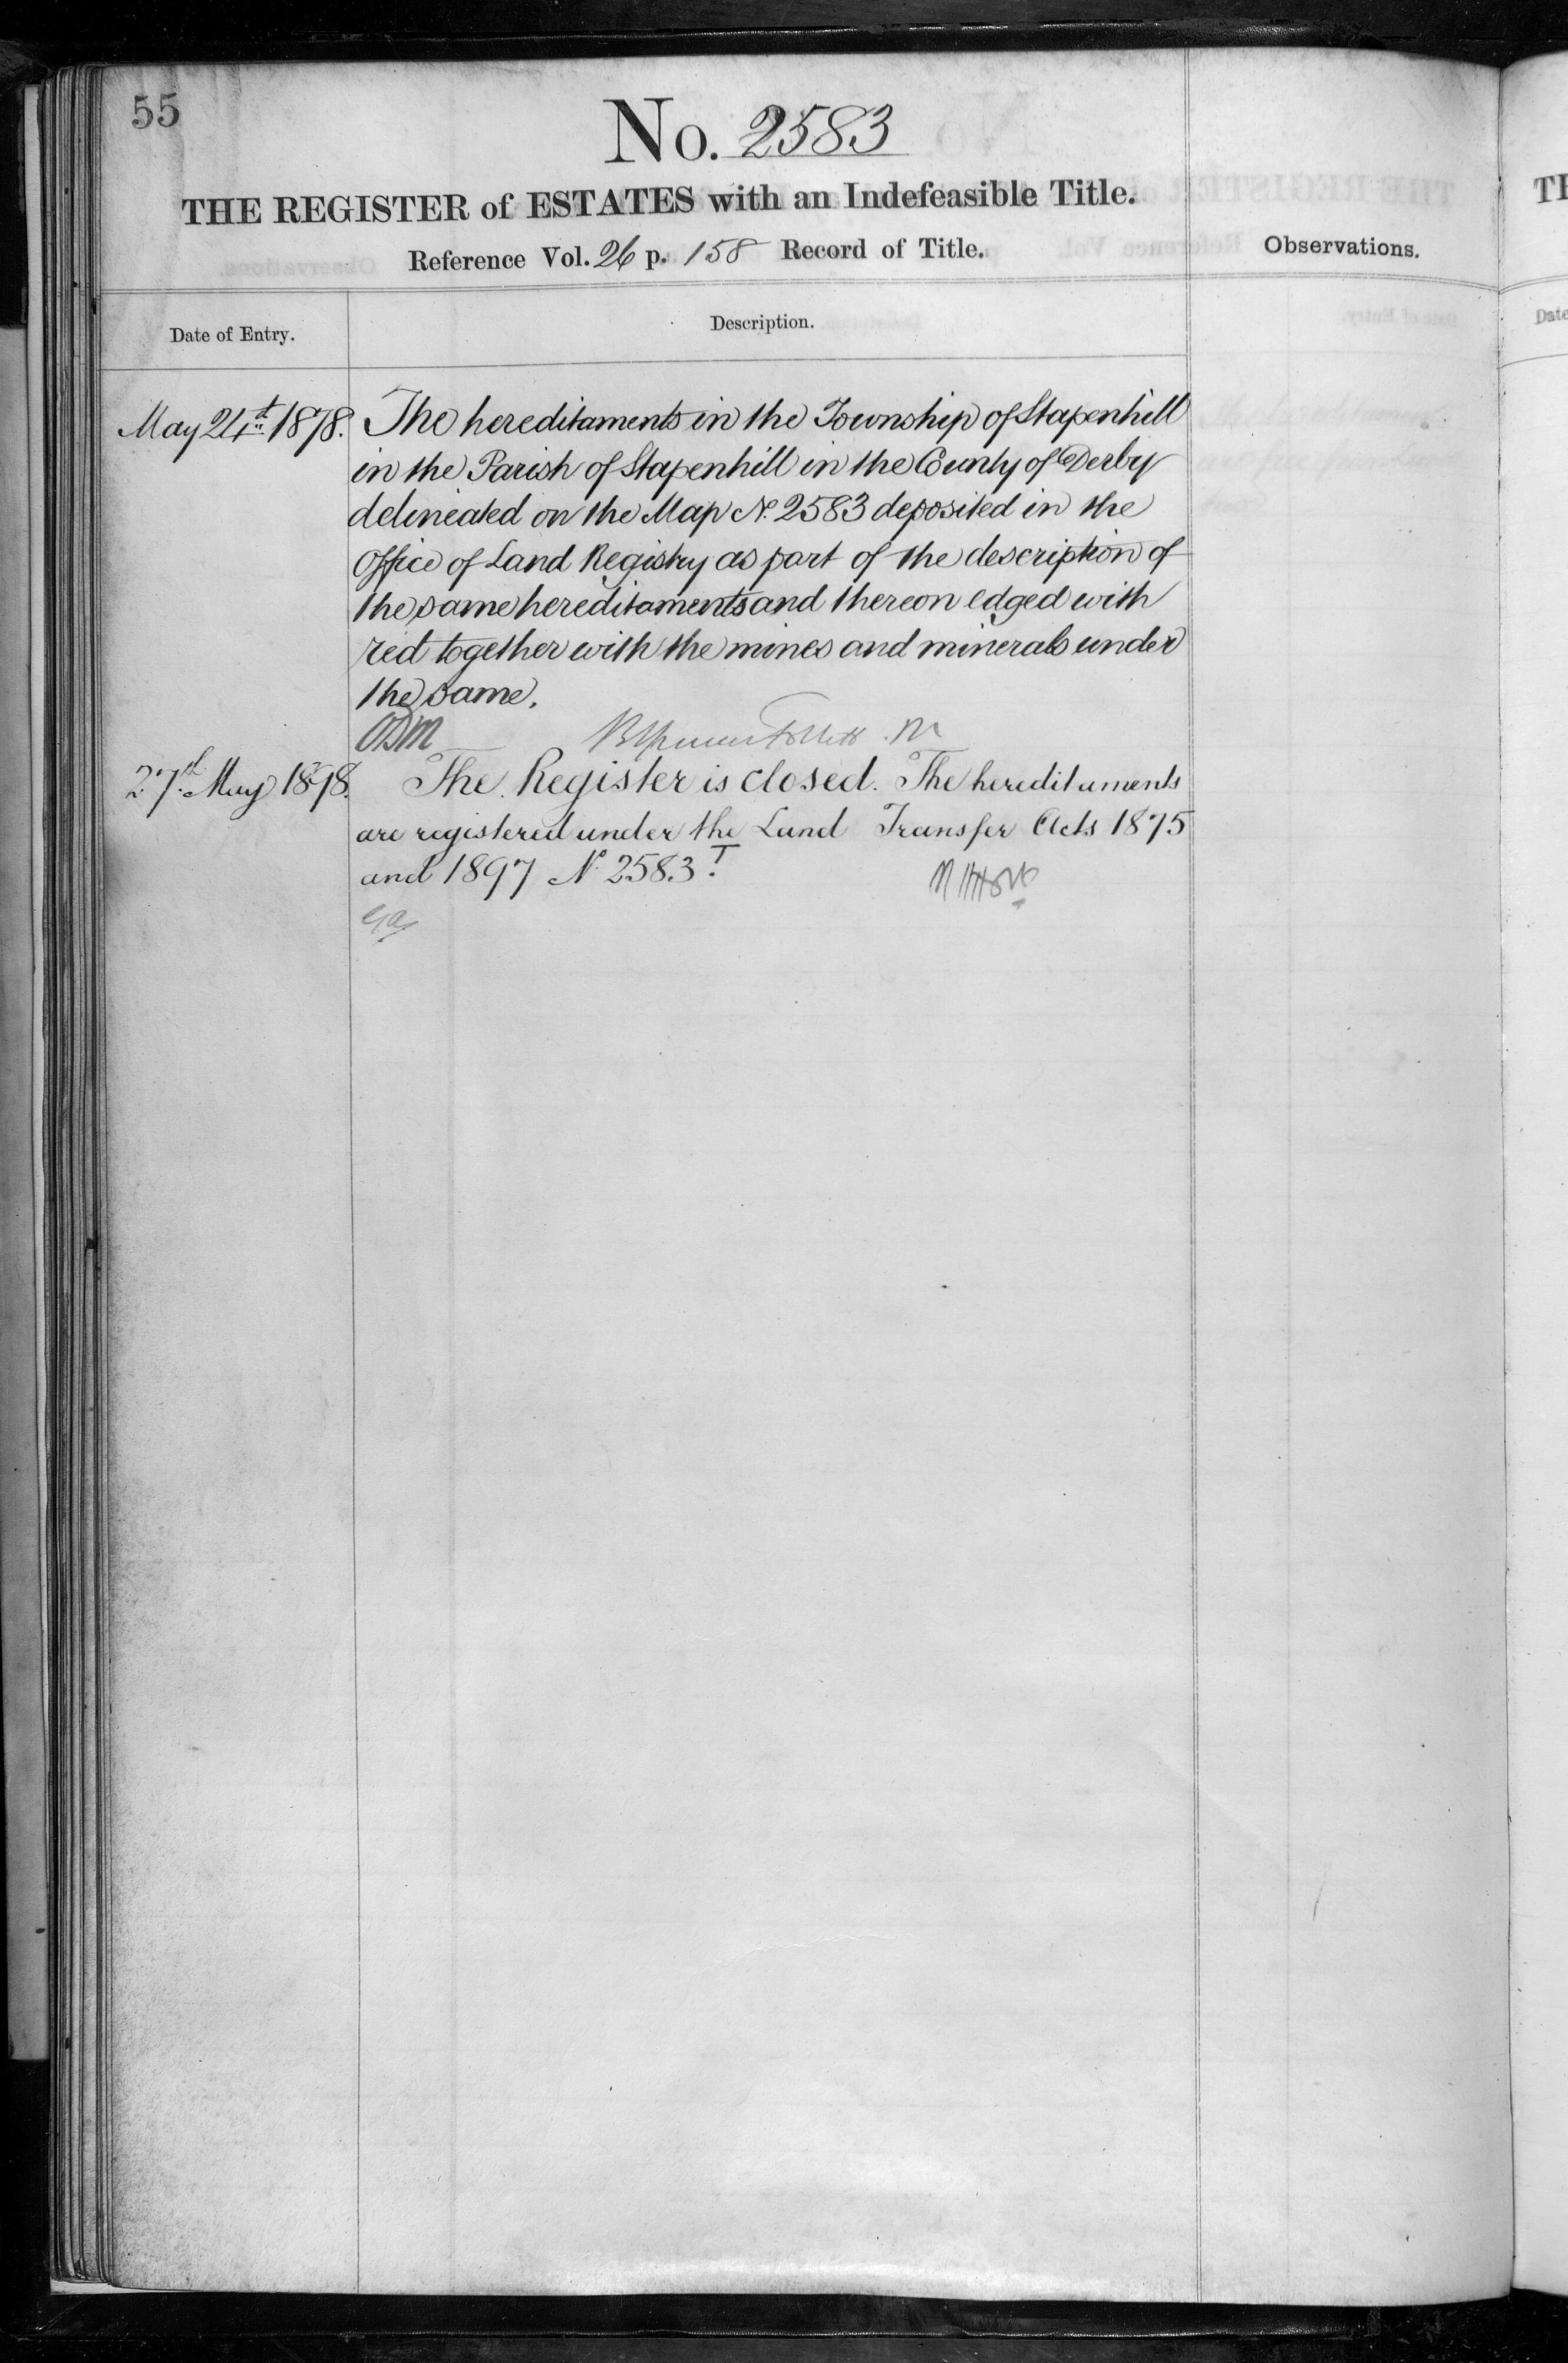 55
No. 2583
THE REGISTER of ESTATES with an Indefeasible Title.
Reference Vol. 26 p. 158 Record of Title.
Observations.
Date of Entry.
Description.
May 24th 1878. The hereditaments in the Township of Stapenhill
in the Parish of Stapenhill in the County of Derby
delineated on the Map No. 2583 deposited in the
Office of Land Registry as part of the description of
the same hereditaments and thereon edged with
red together with the mines and minerals under
the same.
27th May 1898. The Register is closed. The hereditaments
are registered under the Land Transfer Acts 1875
and 1897 No. 2583 T.
TH
Date